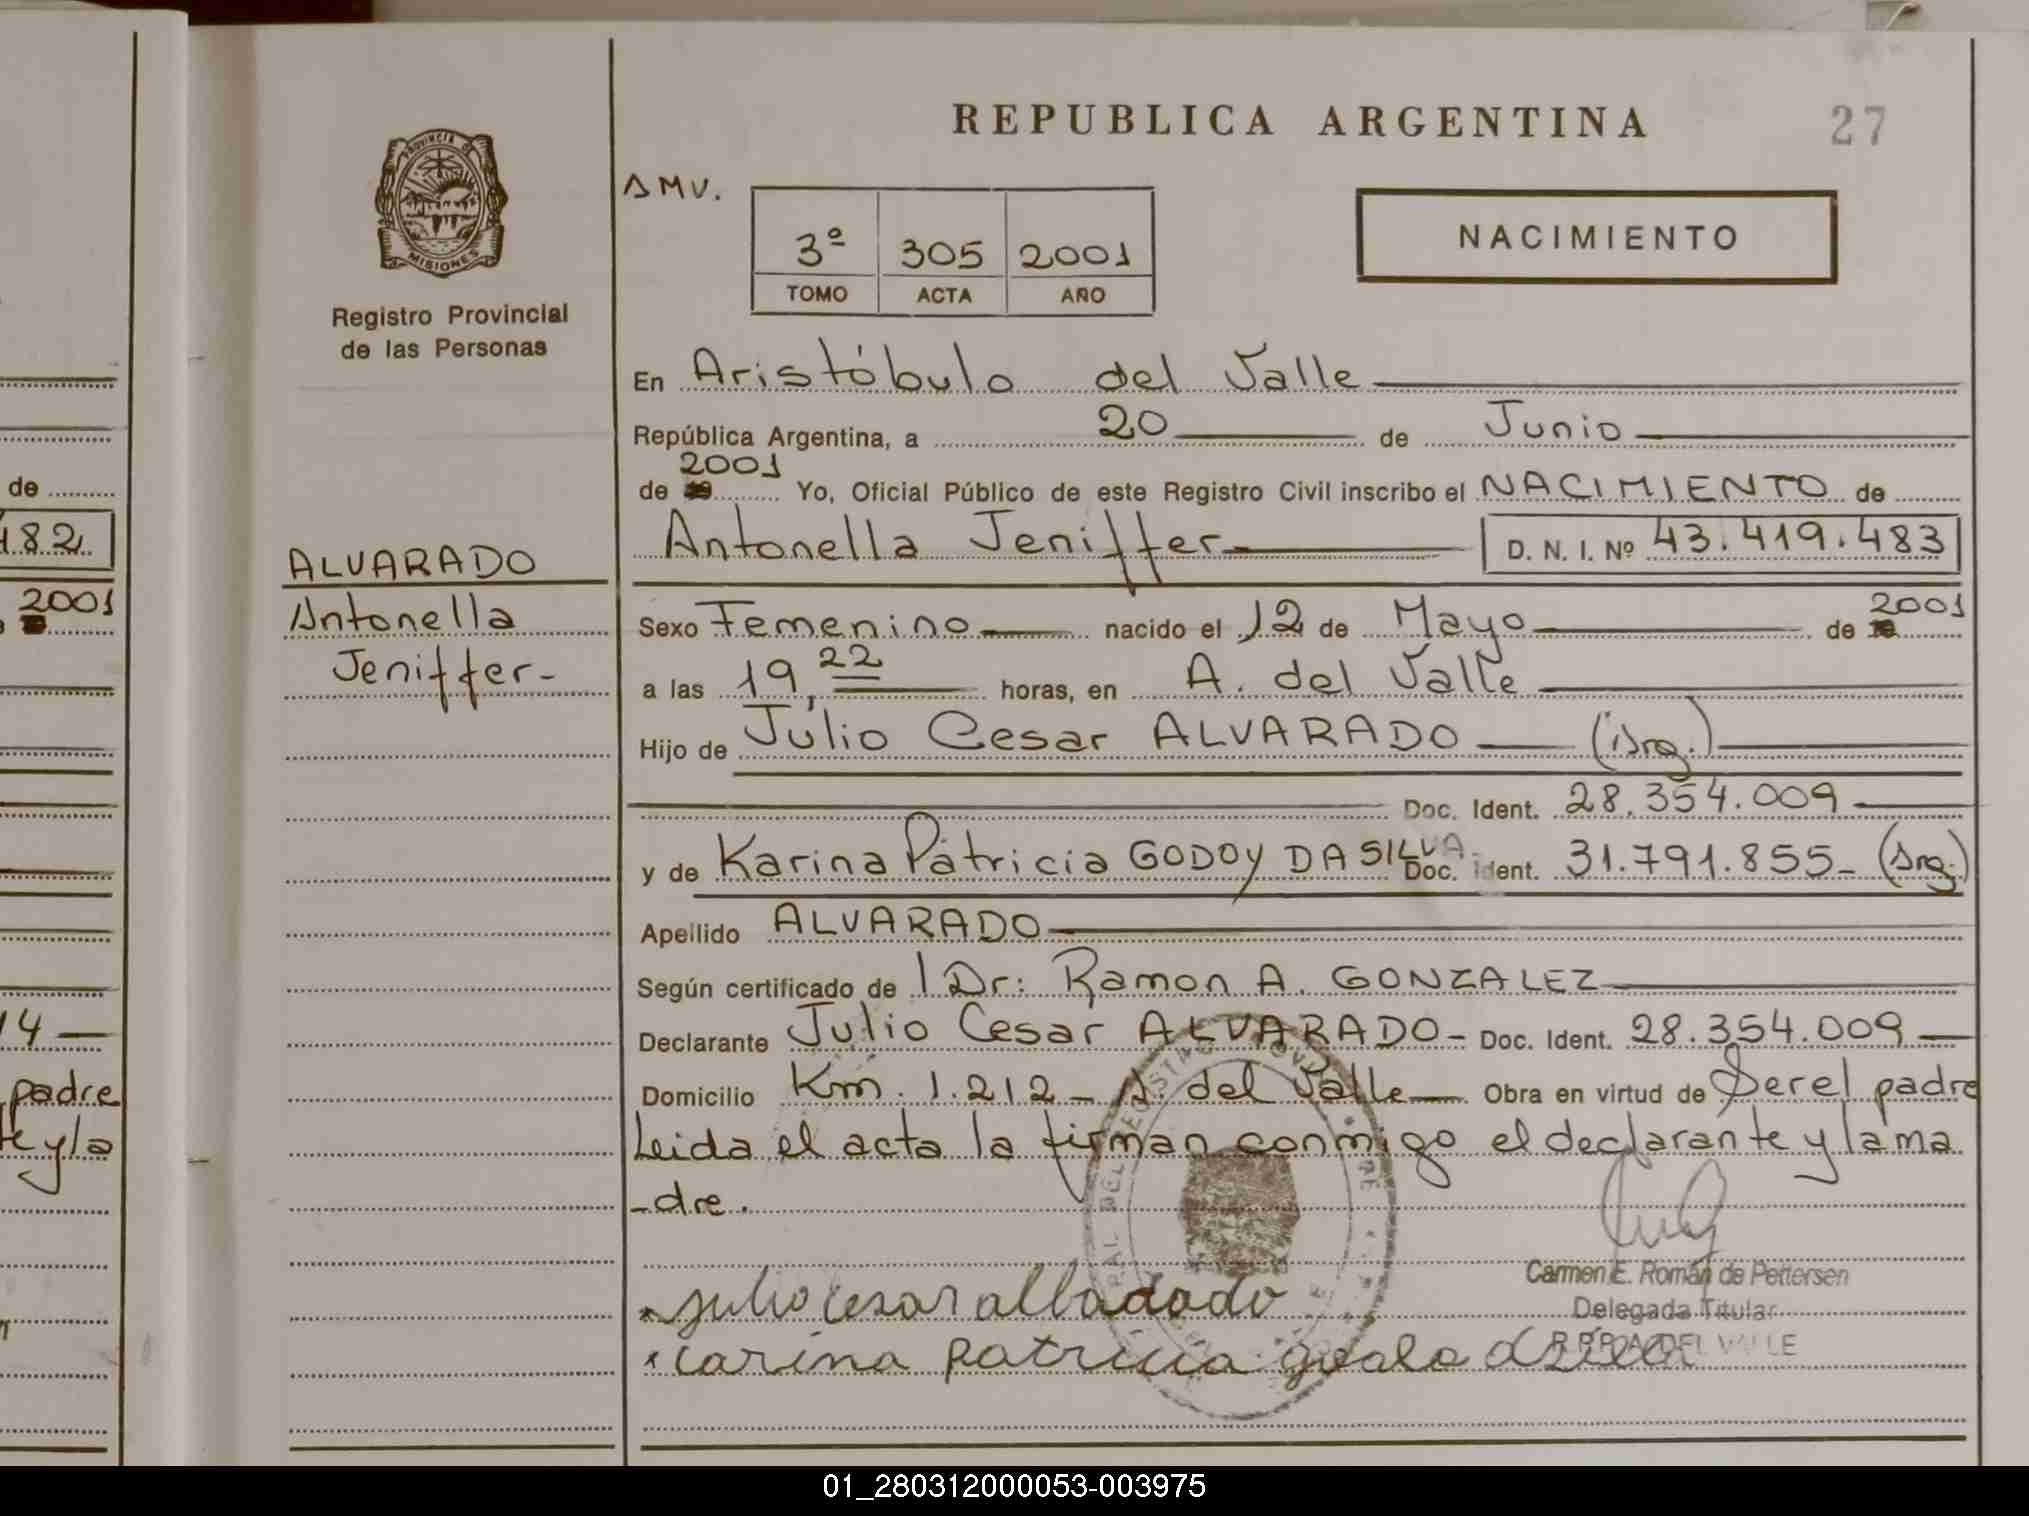 REPUBLICA ARGENTINA
27
PROVINCIA DE
MISIONES
Registro Provincial
de las Personas
AMV.
3ª 305 2001
TOMO ACTA AÑO
NACIMIENTO
En Aristóbulo del Valle
República Argentina, a 20 de Junio
de 2001 Yo, Oficial Público de este Registro Civil inscribo el NACIMIENTO de
Antonella Jeniffer D. N. I. Nº 43.419.483
ALVARADO
Antonella
Jeniffer-
Sexo Femenino nacido el 12 de Mayo de 2001
a las 19,22 horas, en A. del Valle
Hijo de Julio Cesar ALVARADO (Arg.)
Doc. Ident. 28.354.009
y de Karina Patricia GODOY DA SILVA- Doc. Ident. 31.791.855- (Arg.)
Apellido ALVARADO
Según certificado de Dr: Ramon A. GONZALEZ
Declarante Julio Cesar ALVARADO- Doc. Ident. 28.354.009
Domicilio Km. 1.212 - A. del Valle Obra en virtud de Ser el padre
Leida el acta la firman conmigo el declarante y la ma
-dre.
julio cesar albadado
carina patricia
Carmen E. Román de Pettersen
Delegada Titular
R.P.P. A. DEL VALLE
de
482
2001
14
padre
te y la
01_280312000053-003975